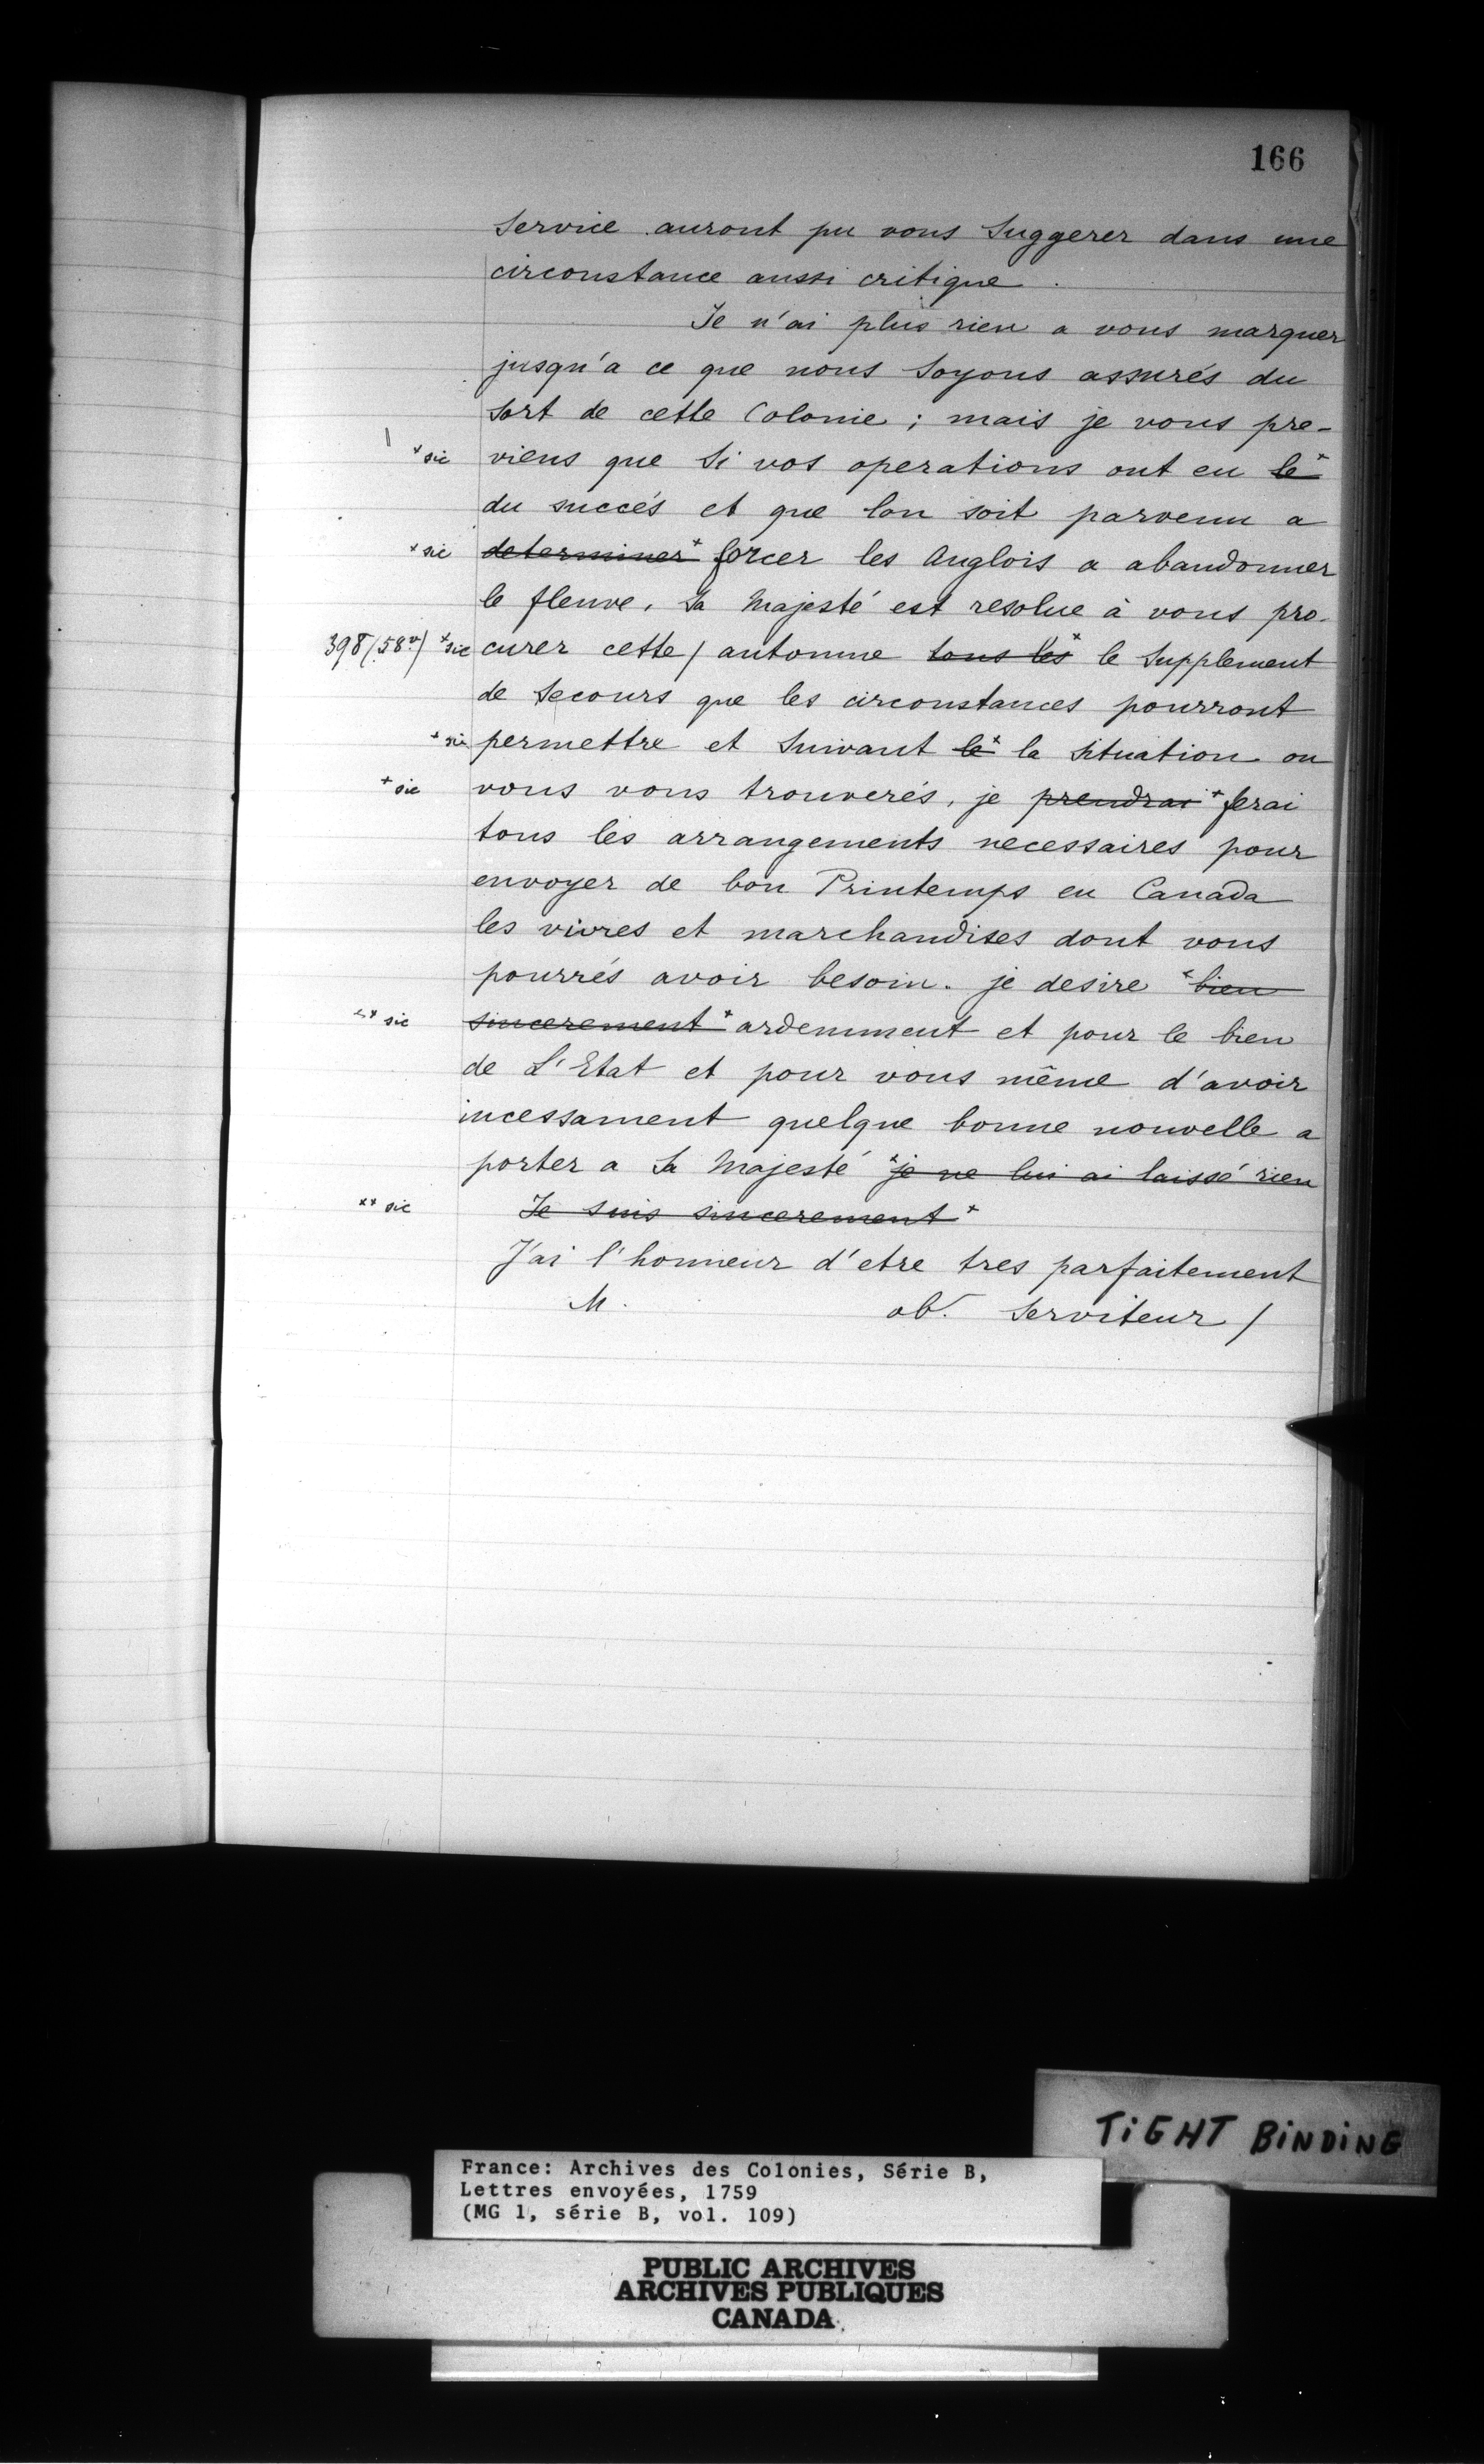 166
Service auront pu vous Suggerer dans une
circonstance aussi critique.
Je n'ai plus rien a vous marquer
jusqu'a ce que nous Soyons assurés du
Sort de cette Colonie ; mais je vous pre-
* sic viens que Si vos operations ont eu le*
du succés et que lon soit parvenu a
* sic determiner* forcer les Anglois a abandonner
le fleuve, Sa Majesté est resolue à vous pro-
398 (58v) * sic curer cette / automne tous les* le Supplement
de Secours que les circonstances pourront
* sic permettre et Suivant le* la Situation ou
* sic vous vous trouverés, je prendrai * ferai
tous les arrangements necessaires pour
envoyer de bon Printemps en Canada
les vivres et marchandises dont vous
pourrés avoir besoin. je desire * bien
** sic sincerement * ardemment et pour le bien
de L'Etat et pour vous même d'avoir
incessament quelque bonne nouvelle a
porter a Sa Majesté * je ne lui ai laissé rien
** sic Je suis sincerement *
J'ai l'honneur d'etre tres parfaitement
M. ob. Serviteur /
TiGHT BiNDiNG
France: Archives des Colonies, Série B,
Lettres envoyées, 1759
(MG 1, série B, vol. 109)
PUBLIC ARCHIVES
ARCHIVES PUBLIQUES
CANADA